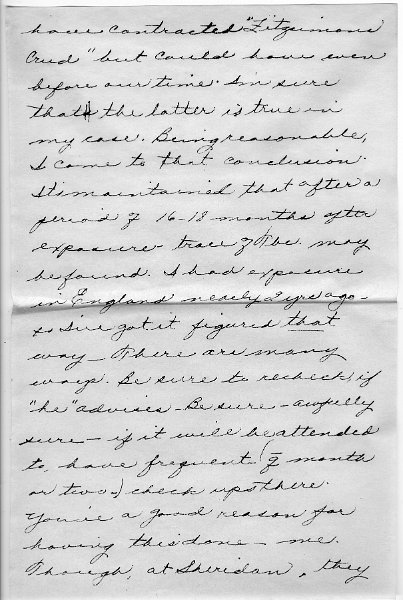 have contracted "Fitzsimons
Crud" but could have even
before our time. I'm sure
that the latter is true in
my case. Being reasonable,
I came to that conclusion.
It's maintained that after a
period of 16-18 months after
exposure trace of Tbc may
be found. I had exposure
in England nearly 2 yrs ago -
so I've got it figured that
way - There are many
ways. Be sure to recheck, if
"he" advises - Be sure - awfully
sure - if it will be attended
to, have frequent (of month
or two.) check ups there.
You've a good reason for
having this done - me.
Though, at Sheridan, they